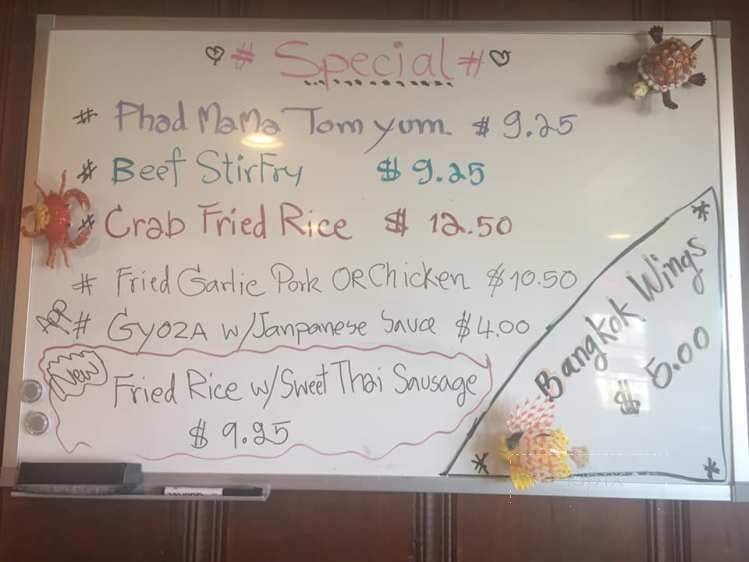 # Special #
# Phad MaMa Tom yum $ 9.25
# Beef StirFry $ 9.25
# Crab Fried Rice $ 12.50
# Fried Garlic Pork OR Chicken $10.50
App # GYOZA w/Janpanese Sauce $4.00
New Fried Rice w/Sweet Thai Sausage
$ 9.25
* Bangkok Wings
$ 5.00
* *